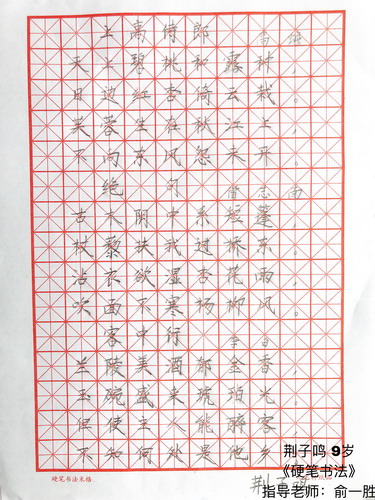 上高侍郎 高蟾
天上碧桃和露种，
日边红杏倚云栽。
芙蓉生在秋江上，
不向东风怨未开。
绝句 僧志南
古木阴中系短篷，
杖藜扶我过桥东。
沾衣欲湿杏花雨，
吹面不寒杨柳风。
客中行 李白
兰陵美酒郁金香，
玉碗盛来琥珀光。
但使主人能醉客，
不知何处是他乡。
硬笔书法米格
荆子鸣
荆子鸣 9岁
《硬笔书法》
指导老师：俞一胜